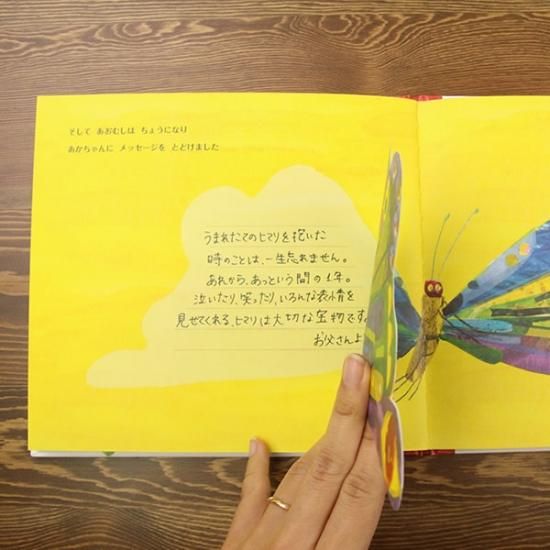 そして あおむしは ちょうになり
あかちゃんに メッセージを とどけました
うまれたてのヒマリを抱いた
時のことは、一生忘れません。
あれから、あっという間の1年。
泣いたり、笑ったり、いろんな表情を
見せてくれる、ヒマリは大切な宝物です。
お父さんよ